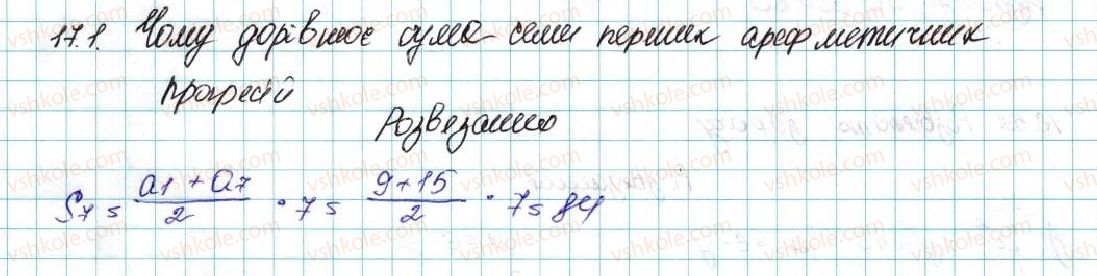 17.1. Чому дорівнює сума семи перших арефметичних
прогресій
Розвезання
S7 = a1 + a7 / 2 · 7 = 9 + 15 / 2 · 7 = 84